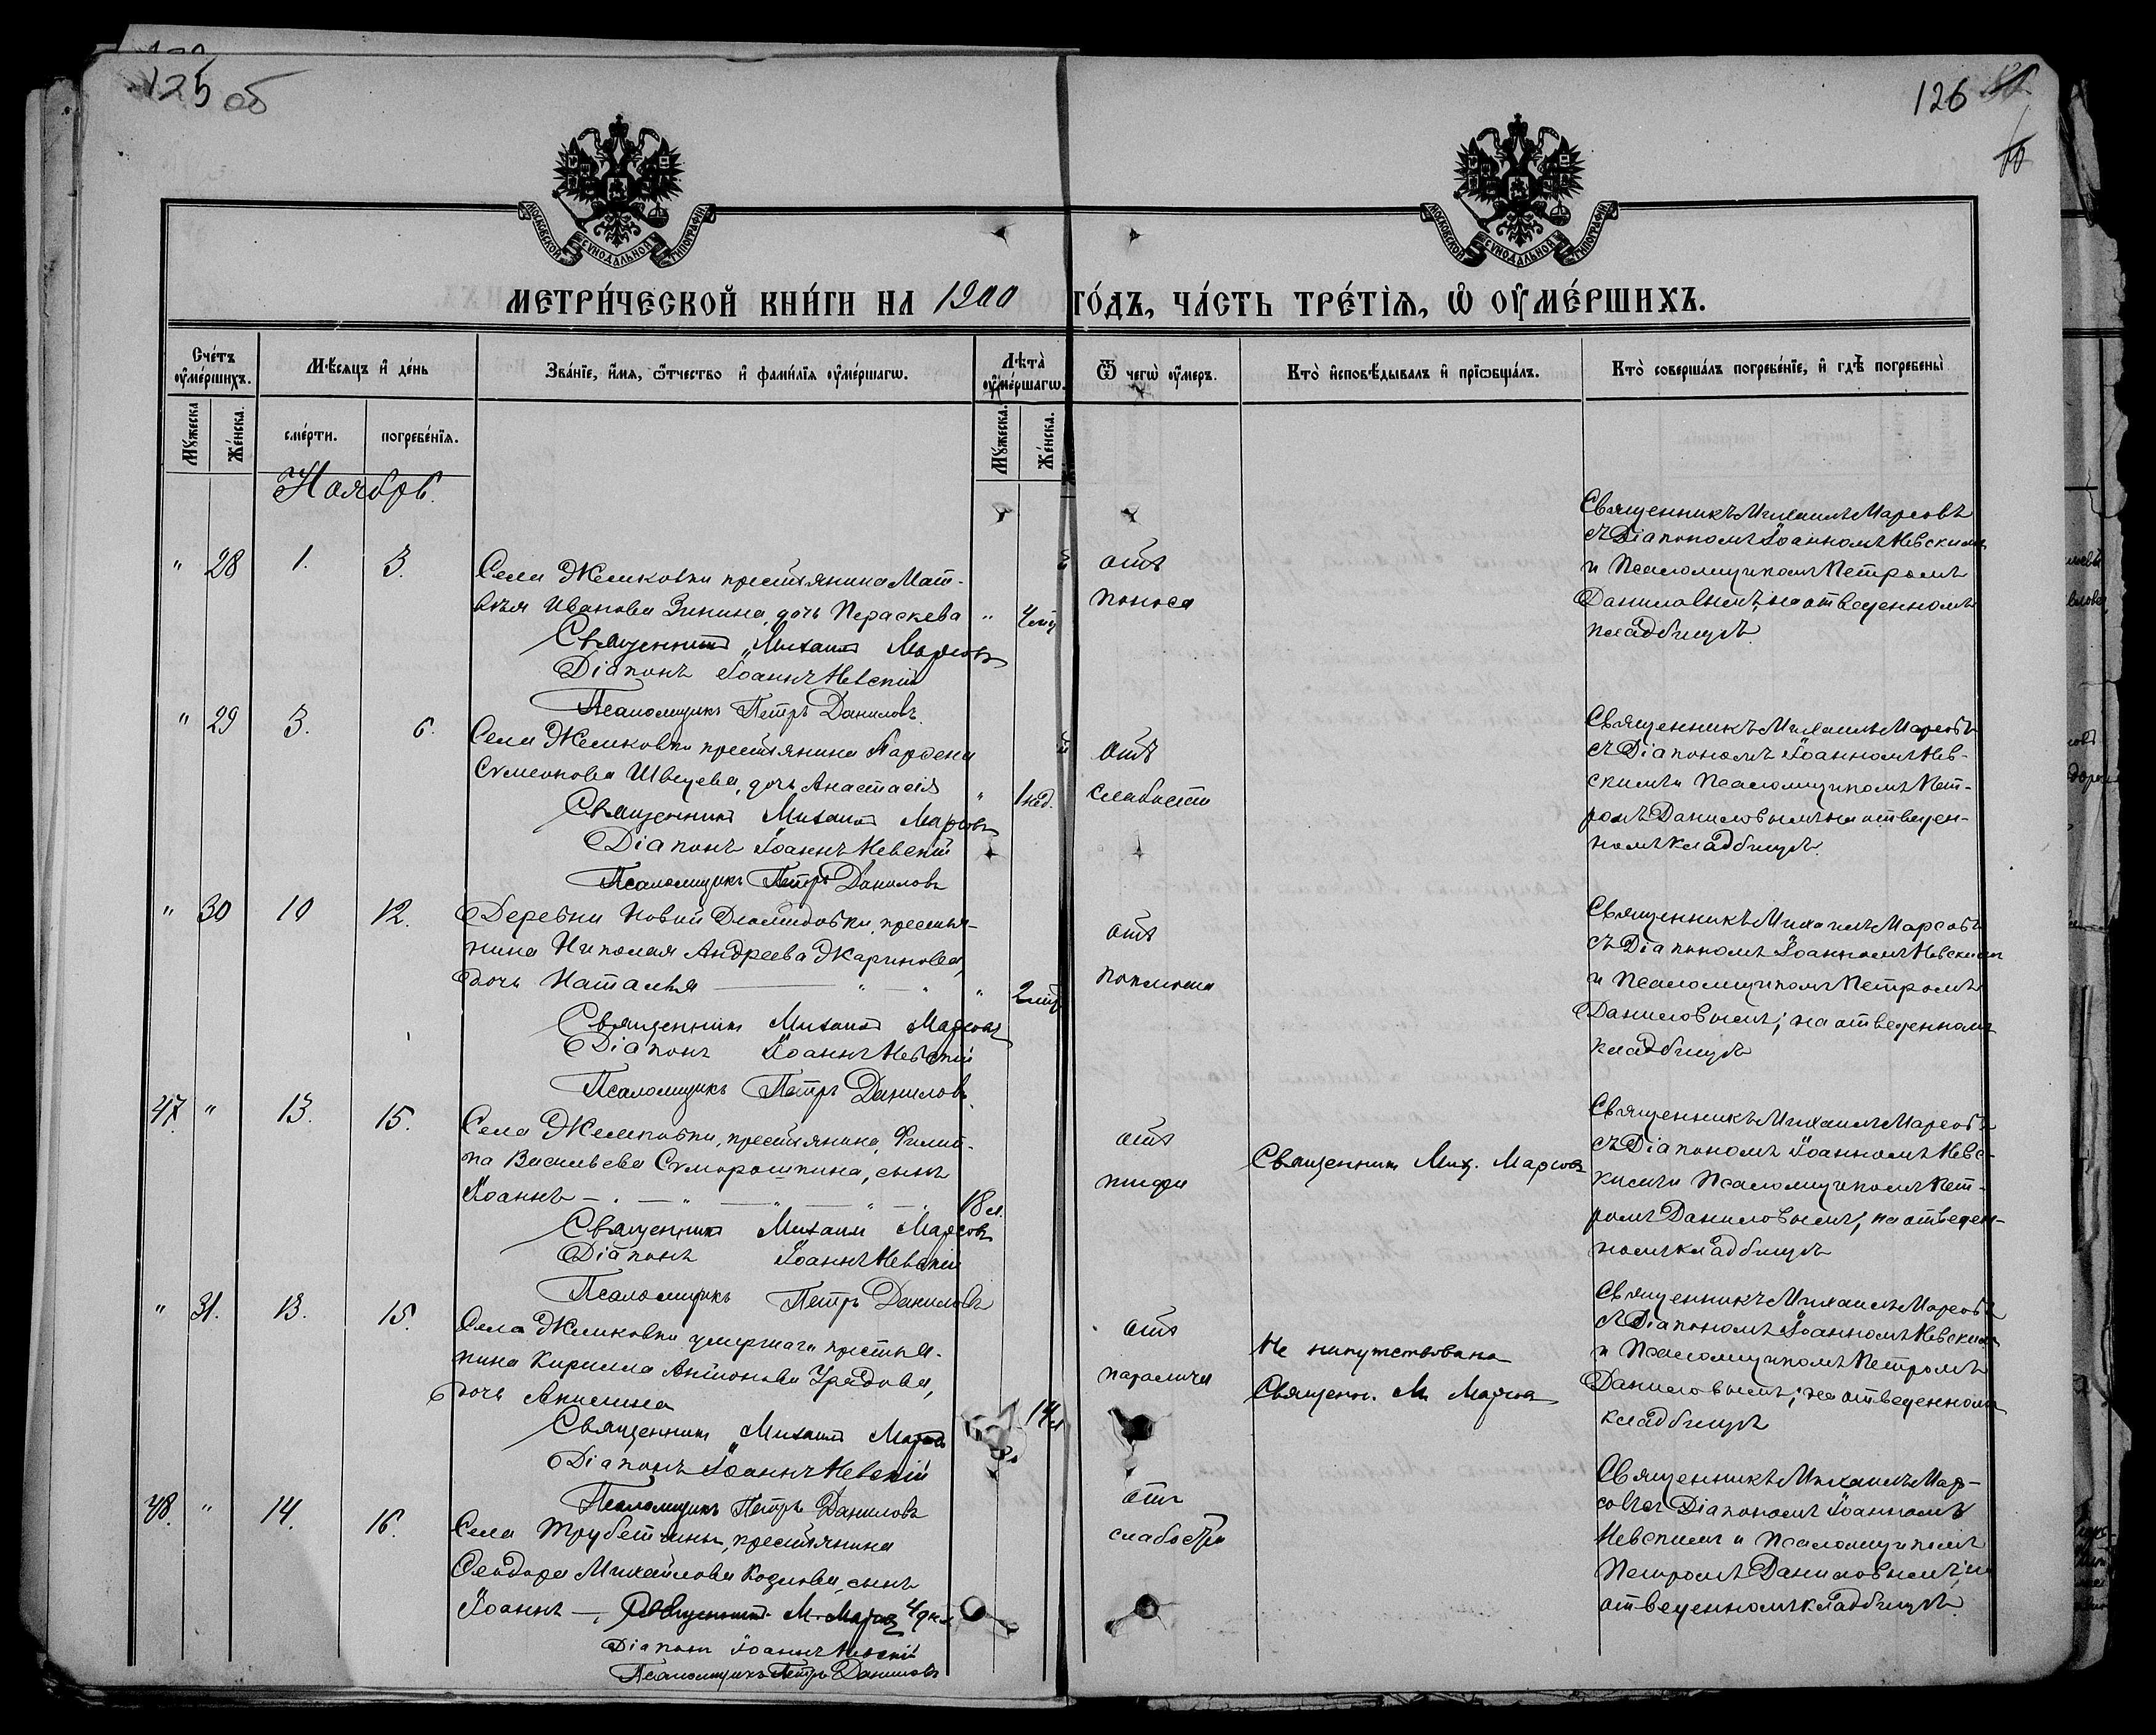 125 об
126
МОСКОВСКОЙ СѴНОДАЛЬНОЙ ТИПОГРАФІИ.
МОСКОВСКОЙ СѴНОДАЛЬНОЙ ТИПОГРАФІИ.
МЕТРИ́ЧЕСКОЙ КНИ́ГИ НА 1900 ГО́ДЪ, ЧА́СТЬ ТРЕ́ТІѦ, Ѡ̑ ОУ҆МЕ́РШИХЪ.
Сче́тъ оу҆ме́ршихъ.
Мѣ́сяцъ и҆ де́нь
Зва́нїе, и҆́мя, ѻ҆́тчество и҆ фами́лїя оу҆ме́ршагѡ.
Лѣ́та оу҆ме́ршагѡ.
Ѿ чегѡ̀ оу҆́меръ.
Кто̀ и҆сповѣ́дывалъ и҆ прїѡбща́лъ.
Кто̀ соверша́лъ погребе́нїе, и҆ гдѣ̀ погребены̀
Мꙋ́жеска
Же́нска.
сме́рти.
погребе́нїя.
Мꙋ́жеска.
Же́нска.
Ноябрь.
" 28 1. 3.
Села Жемковки крестьянина Мат-
вѣя Иванова Зинина, дочь Параскева "
Священникъ Михаилъ Марсовъ
Діаконъ Іоаннъ Невскій
Псаломщикъ Петръ Даниловъ.
отъ
поноса
Священникъ Михаилъ Марсовъ
съ Діакономъ Іоанномъ Невскимъ
и Псаломщикомъ Петромъ
Даниловымъ; на отведенномъ
кладбищѣ.
" 29 3. 6.
Села Жемковки крестьянина Парѳена
Симеонова Швецева, дочь Анастасія " 1 нед.
Священникъ Михаилъ Марсовъ
Діаконъ Іоаннъ Невскій
Псаломщикъ Петръ Даниловъ
отъ
слабости
Священникъ Михаилъ Марсовъ
съ Діакономъ Іоанномъ Нев-
скимъ и Псаломщикомъ Пет-
ромъ Даниловымъ на отведен-
номъ кладбищѣ.
" 30 10 12.
Деревни Новой Демидовки, крестья-
нина Николая Андреева Жаринова,
дочь Наталья "
Священникъ Михаилъ Марсовъ
Діаконъ Іоаннъ Невскій
Псаломщикъ Петръ Даниловъ.
отъ
коклюша
Священникъ Михаилъ Марсовъ
съ Діакономъ Іоанномъ Невскимъ
и Псаломщикомъ Петромъ
Даниловымъ; на отведенномъ
кладбищѣ
47. " 13. 15.
Села Жемковки, крестьянина, Филип-
па Васильева Скморошкина, сынъ
Іоаннъ 18 л.
Священникъ Михаилъ Марсовъ
Діаконъ Іоаннъ Невскій
Псаломщикъ Петръ Даниловъ
отъ
тифа
Священникъ Мих. Марсовъ
Священникъ Михаилъ Марсовъ
съ Діакономъ Іоанномъ Невс-
кимъ и Псаломщикомъ Пет-
ромъ Даниловымъ; на отведен-
номъ кладбищѣ
" 31. 13. 15.
Села Жемковки умершаго крестья-
нина Кирилла Антонова Урядова,
дочь Акилина
Священникъ Михаилъ Марсовъ
Діаконъ Іоаннъ Невскій
Псаломщикъ Петръ Даниловъ
отъ
паралича
Не напутствована
Священ. М. Марсовъ
Священникъ Михаилъ Марсовъ
съ Діакономъ Іоанномъ Невскимъ
и Псаломщикомъ Петромъ
Даниловымъ; на отведенномъ
кладбищѣ
48. " 14. 16.
Села Трубетчины, крестьянина
Ѳеодора Михайлова Козлова, сынъ
Іоаннъ — Священникъ М. Марсовъ 4 дня
Діаконъ Іоаннъ Невскій
Псаломщикъ Петръ Даниловъ
отъ
слабости
Священникъ Михаилъ Мар-
совъ съ Діакономъ Іоанномъ
Невскимъ и Псаломщикомъ
Петромъ Даниловымъ; на
отведенномъ кладбищѣ.